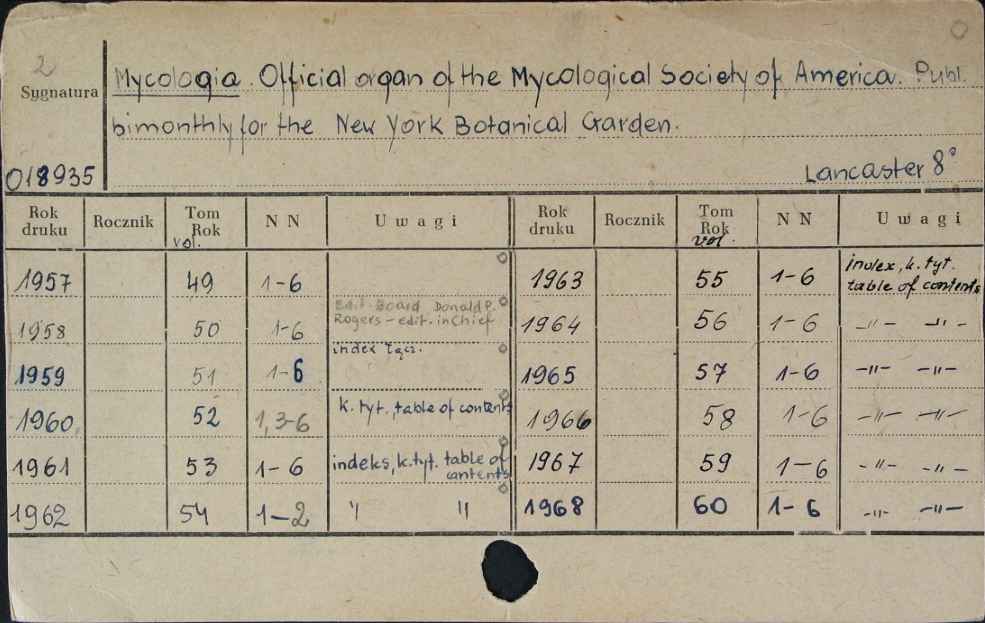 2
Sygnatura
018935
Mycologia. Official organ of the Mycological Society of America. Publ.
bimonthly for the New York Botanical Garden.
Lancaster 8°
Rok druku Rocznik Tom Rok vol. N N Uwagi Rok druku Rocznik Tom Rok vol. N N Uwagi
1957 49 1-6 1963 55 1-6 index, k. tyt. table of contents
1958 50 1-6 Edit. Board Donald P. Rogers - edit. in Chief 1964 56 1-6 -"- -"-
1959 51 1-6 index 1965 57 1-6 -"- -"-
1960 52 1,3-6 k. tyt., table of contents 1966 58 1-6 -"- -"-
1961 53 1-6 indeks, k. tyt. table of contents 1967 59 1-6 -"- -"-
1962 54 1-2 " " 1968 60 1-6 -"- -"-